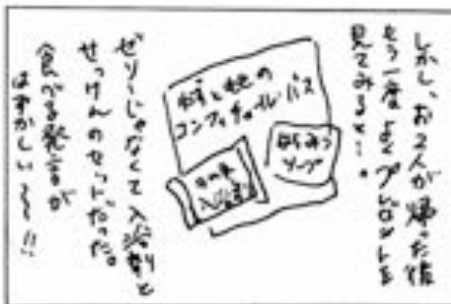 しかし、お2人が帰った後
もう一度よくプレゼントを
見てみると…。
コンフィチュールバス
はちみつ
ソープ
入浴剤
ゼリーじゃなくて入浴剤と
せっけんのセットだった。
食べる発言が
はずかしい〜〜!!